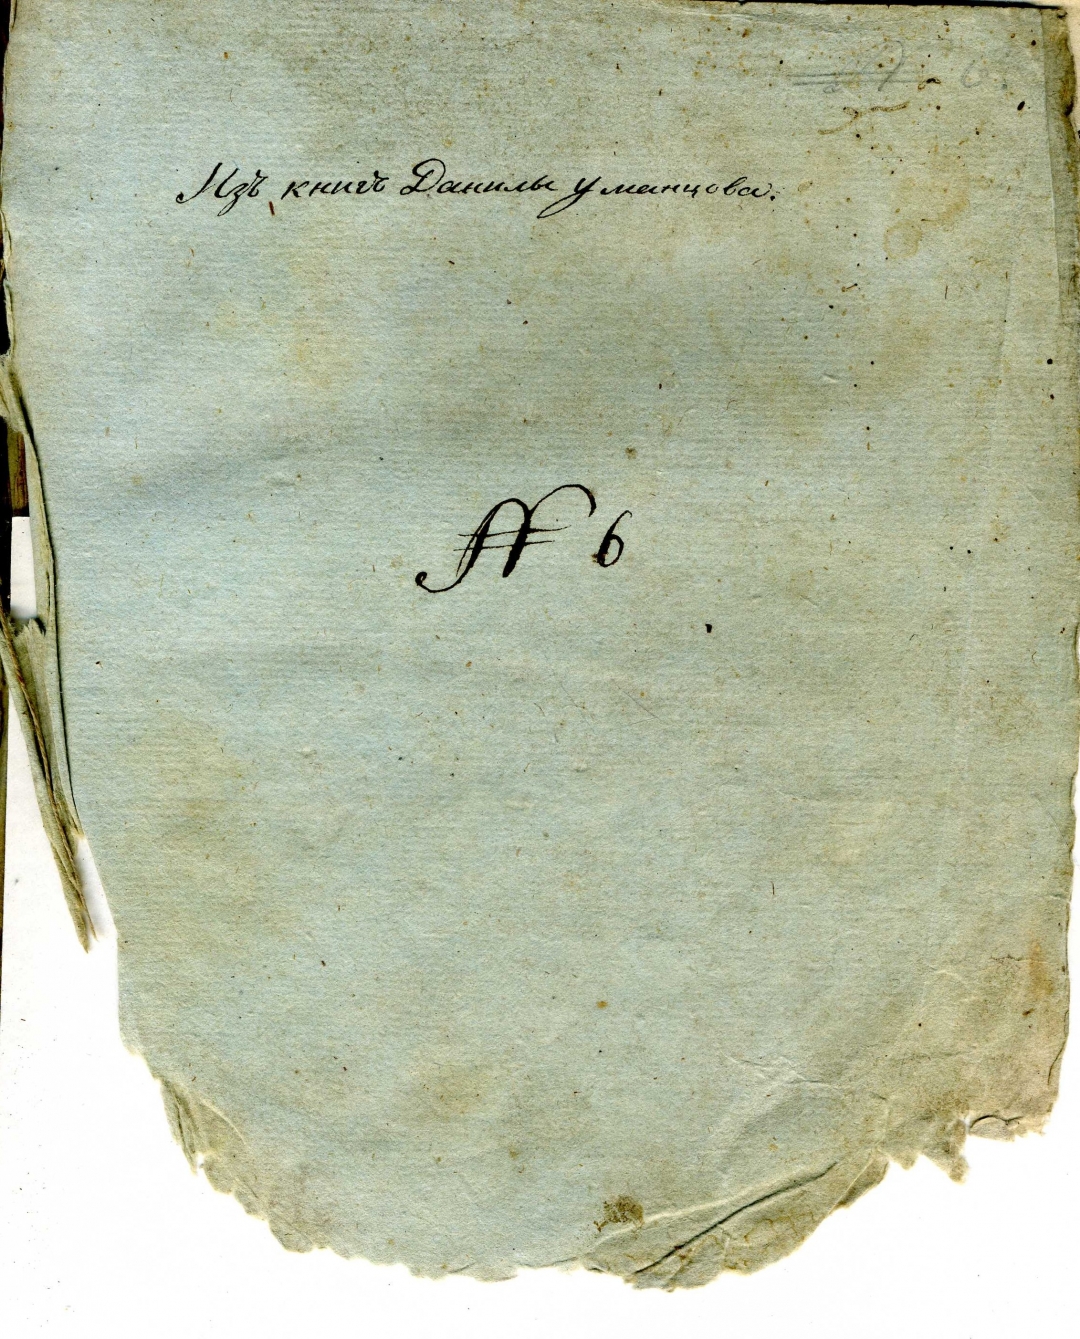 Изъ книгъ Данилы уманцова.
№ 6